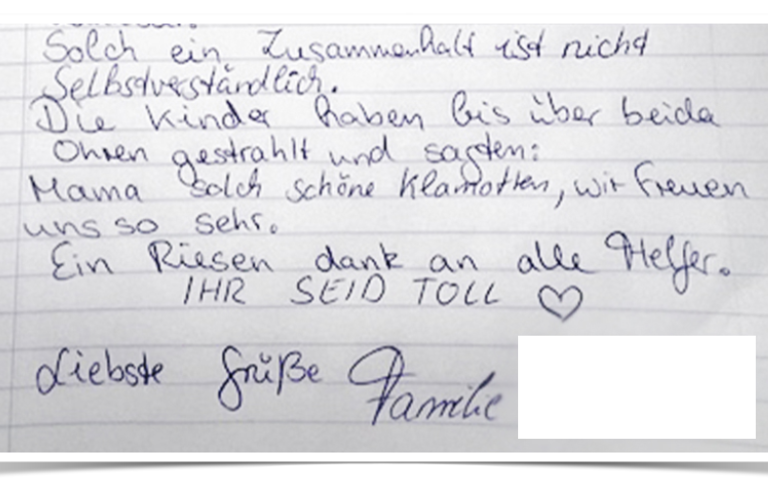 Solch ein Zusammenhalt ist nicht
Selbstverständlich.
Die Kinder haben bis über beide
Ohren gestrahlt und sagten:
Mama solch schöne Klamotten, wir freuen
uns so sehr.
Ein Riesen dank an alle Helfer.
IHR SEID TOLL ♡
Liebste Grüße Familie